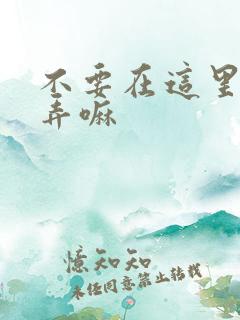 不要在這里
弄嘛
憶知知
未經同意禁止轉載